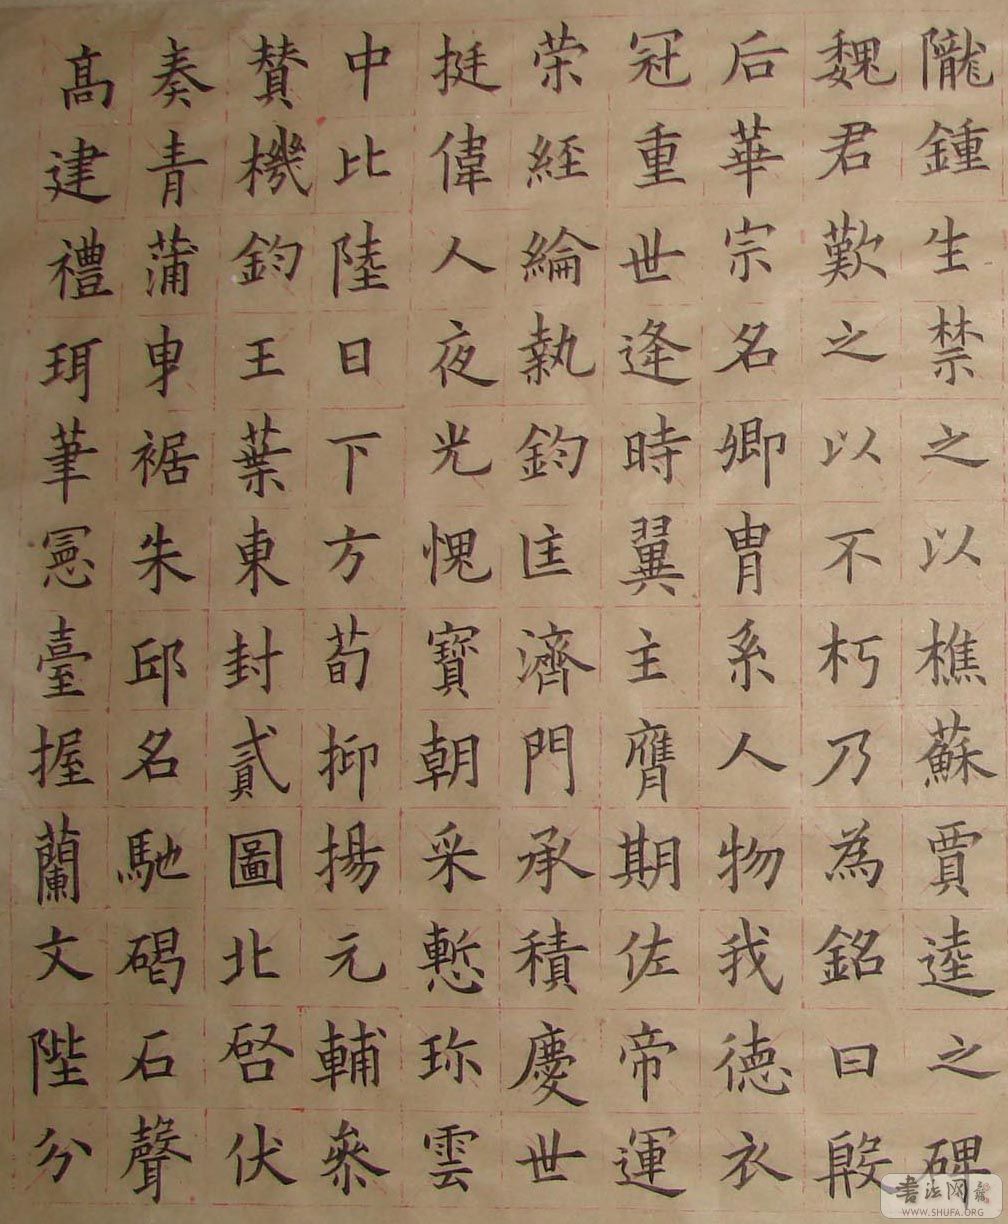 隴鍾生禁之以樵蘇賈逵之碑
魏君歎之以不朽乃為銘曰殷
后華宗名卿胄系人物我德衣
冠重世逢時翼主膺期佐帝運
荣経綸執鈞匡濟門承積慶世
挺偉人夜光愧寶朝采慙珎雲
中比陸日下方荀抑揚元輔叅
賛機鈞王葉東封貳圖北啓伏
奏青蒲曳裾朱邸名馳碣石聲
高建禮珥筆憲臺握蘭文陛分
书法网
WWW.SHUFA.ORG